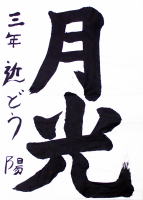 月光
三年 近どう 陽